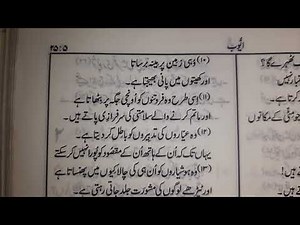 ایوب
۲۵:۵
(۱۰) وُہی زمین پر مینہ برساتا
اور کھیتوں میں پانی بھیجتا ہے۔
(۱۱) اِسی طرح وہ فروتنوں کو اُونچی جگہ پر بٹھاتا ہے
اور ماتم کرنے والے سلامتی کی سرفرازی پاتے ہیں۔
(۱۲) وہ عیاروں کی تدبیروں کو باطل کر دیتا ہے۔
یہاں تک کہ اُن کے ہاتھ اُن کے مقصود کو پورا نہیں کر سکتے
(۱۳) وہ ہوشیاروں کو اُن ہی کی چالاکیوں میں پھنساتا ہے
اور ٹیڑھے لوگوں کی مشورت جلد جاتی رہتی ہے۔